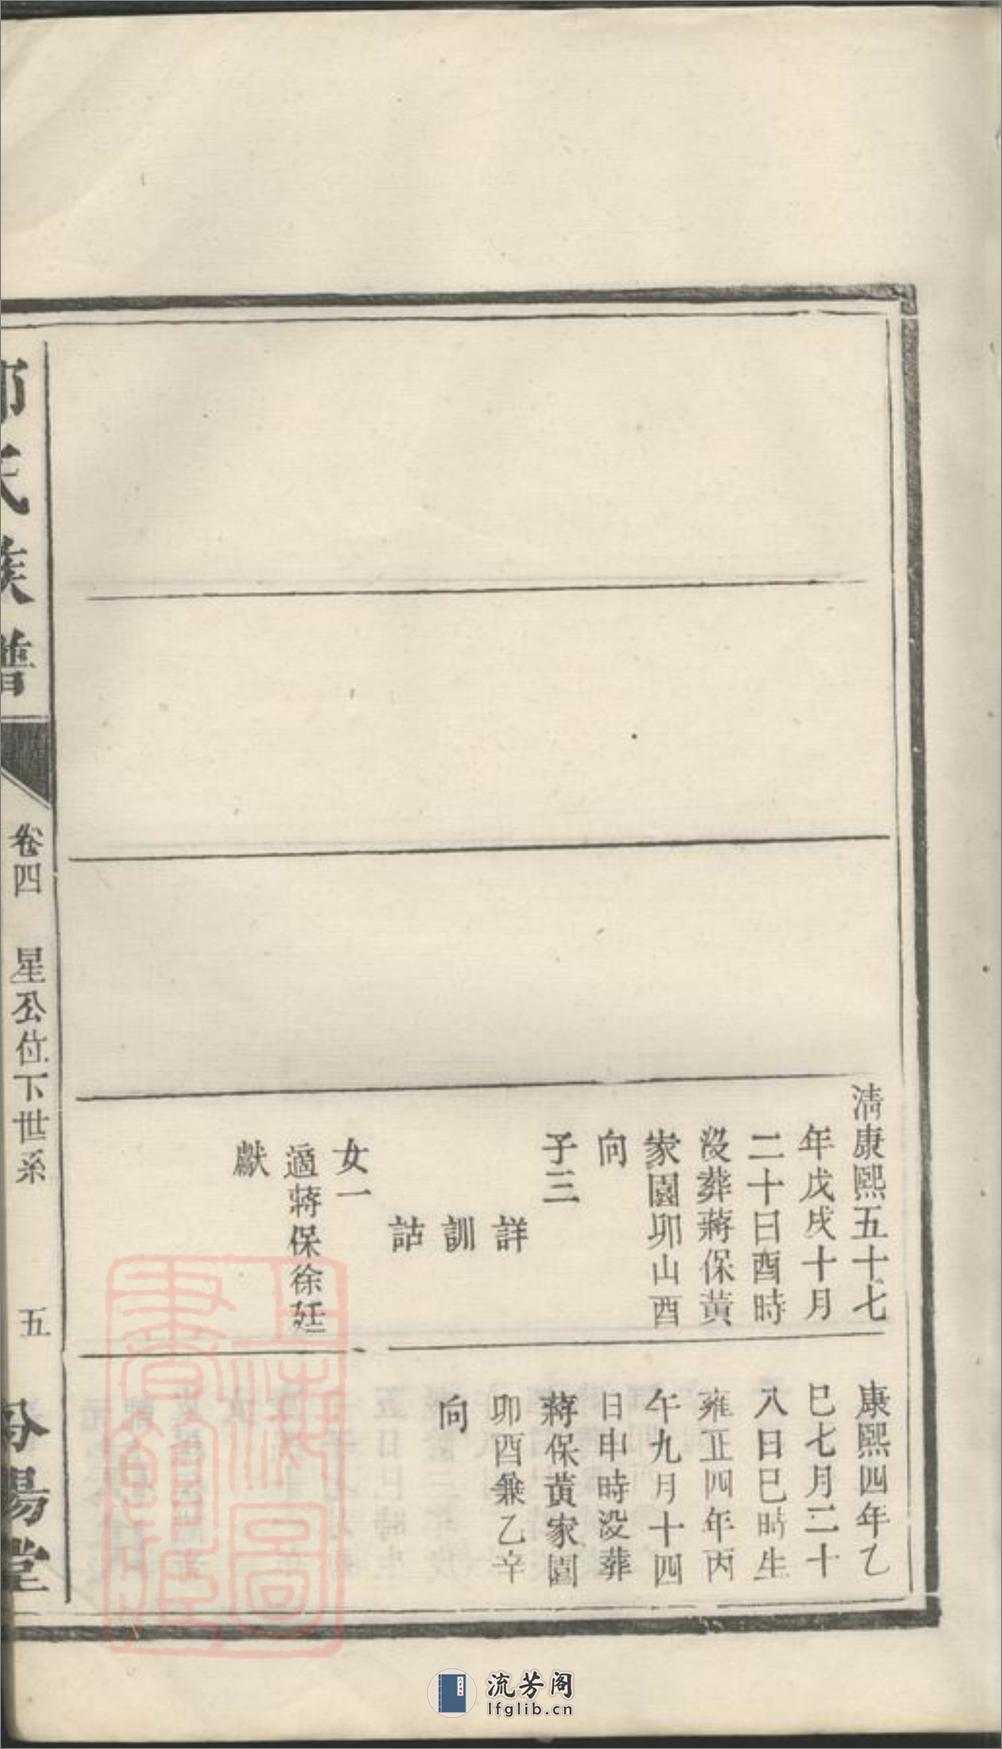 清康熙五十七
年戊戌十月
二十日酉時
沒葬蔣保黃
家園卯山酉
向
子三
詳
訓
詁
女一
適蔣保徐廷
獻
康熙四年乙
巳七月二十
八日巳時生
雍正四年丙
午九月十四
日申時沒葬
蔣保黃家園
卯酉兼乙辛
向
氏族譜
卷四 星公位下世系 五
陽堂
上海圖書館藏
流芳阁
lfglib.cn